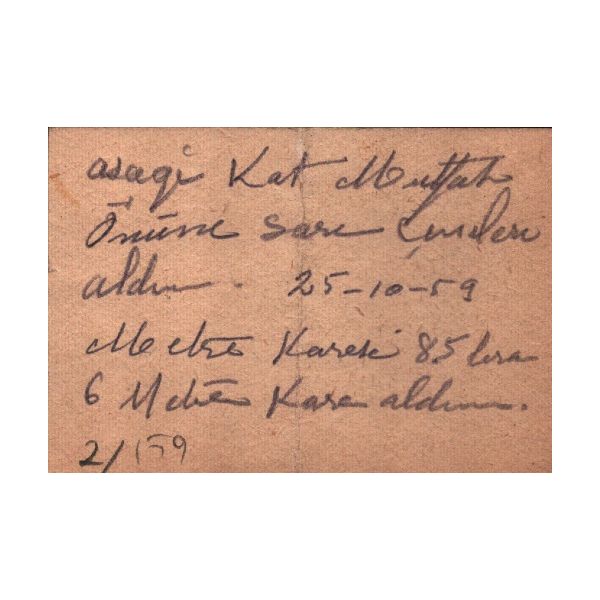 asagi Kat Mutfak
Önüne Sarı Çinileri
aldım. 25-10-59
Metre Karesi 85 lira
6 Metre Kare aldım.
2/159